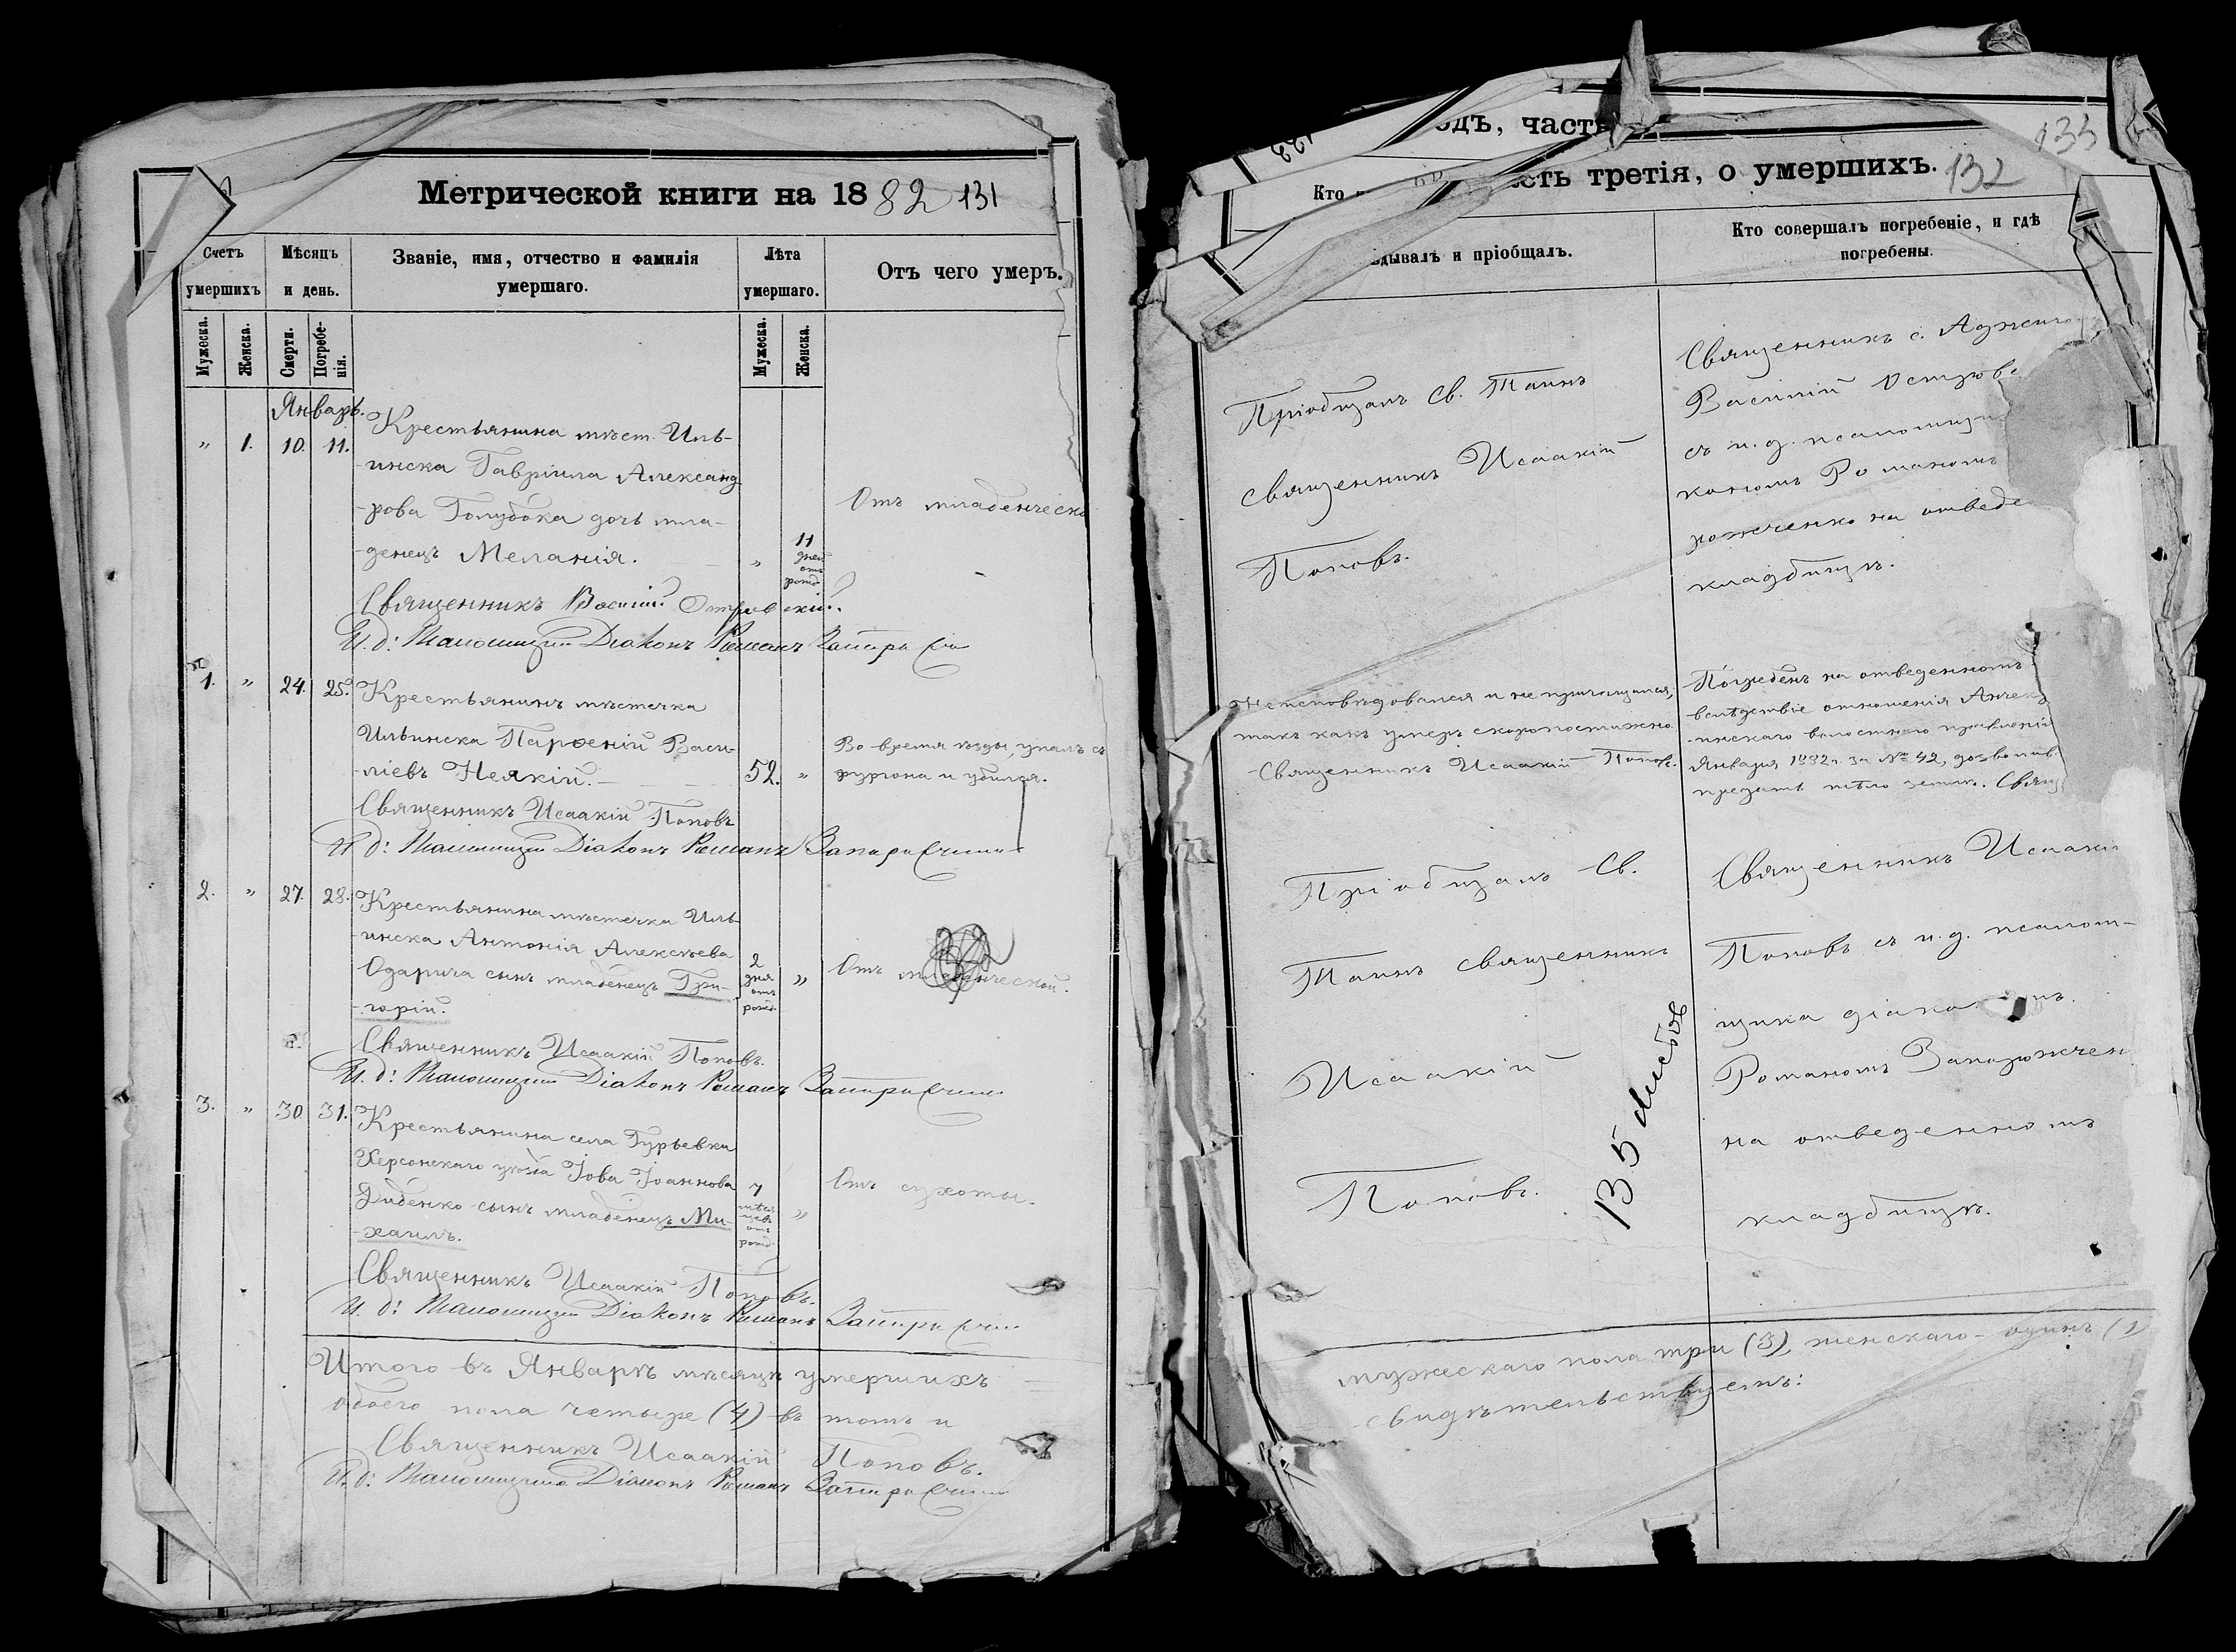 Метрической книги на 1882 131
Счетъ умершихъ
Мѣсяцъ и день.
Званіе, имя, отчество и фамилія умершаго.
Лѣта умершаго.
Отъ чего умеръ.
Мужеска.
Женска.
Смерти.
Погребе-
нія.
Мужеска.
Женска.
Январь.
„ 1. 10. 11. Крестьянина мѣст. Иль-
инска Гавріила Александ
рова Голубока дочь мла-
денецъ Меланія. „ 11 дней отъ рожд.
Отъ младенческо
Священникъ Василій Островскій.
И. д: Псаломщика Діаконъ Романъ
1. „ 24. 25. Крестьянинъ мѣстечка
Ильинска Парѳеній Васи-
ліевъ Неякій. 52. „
Во время ѣзды, упалъ съ
фургона и убился.
Священникъ Исаакій Поповъ
И д: Псаломщика Діаконъ Романъ
2. „ 27. 28. Крестьянина мѣстечка Иль-
инска Антонія Алексѣева
Одарича сынъ младенецъ Гри-
горій. 2 дня отъ рожд. „
Отъ младенческой.
Священникъ Исаакій Поповъ.
И. д: Псаломщика Діаконъ Романъ
3. „ 30. 31. Крестьянина села Гурьевки
Херсонскаго уѣзда Іова Іоаннова
Диденко сынъ младенецъ Ми-
хаилъ. 7 мѣся-
цевъ отъ рожд. „
Отъ сухоты.
Священникъ Исаакій Поповъ.
И. д: Псаломщика Діаконъ Романъ
Итого въ Январѣ мѣсяцѣ умершихъ
обоего пола четыре (4) въ томъ и
Священникъ Исаакій Поповъ.
И. д: Псаломщика Діаконъ Романъ
133
одъ, часть
135
сть третія, о умершихъ. 132
Кто
дывалъ и пріобщалъ.
Кто совершалъ погребеніе, и гдѣ
погребены.
Пріобщалъ Св. Таинъ
священникъ Исаакій
Поповъ.
Священникъ с.
Василій Островс
съ и. д. псаломщи
кономъ Романомъ
рожченко на отведе
кладбищѣ.
Неисповѣдовался и не причащался,
такъ какъ умеръ скоропостижно.
Священникъ Исаакій Поповъ.
Погребенъ на отведенномъ
вслѣдствіе отношенія
инскаго волостного правленія
Января 1882 г. за № 42, дозволив
предать тѣло землѣ. Свящ
Пріобщалъ Св.
Таинъ священникъ
Исаакій
Поповъ.
Священникъ Исаакі
Поповъ съ и. д. псалом-
щика діако мъ
Романомъ Запорожчен
на отведенномъ
кладбищѣ.
мужескаго пола три (3), женскаго - одинъ (1
свидѣтельствуемъ: